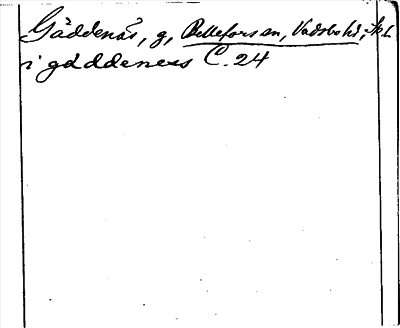 Gäddenäs, g, Bellefors sn, Vadsbo hd, Sk L
i gäddeness C. 24